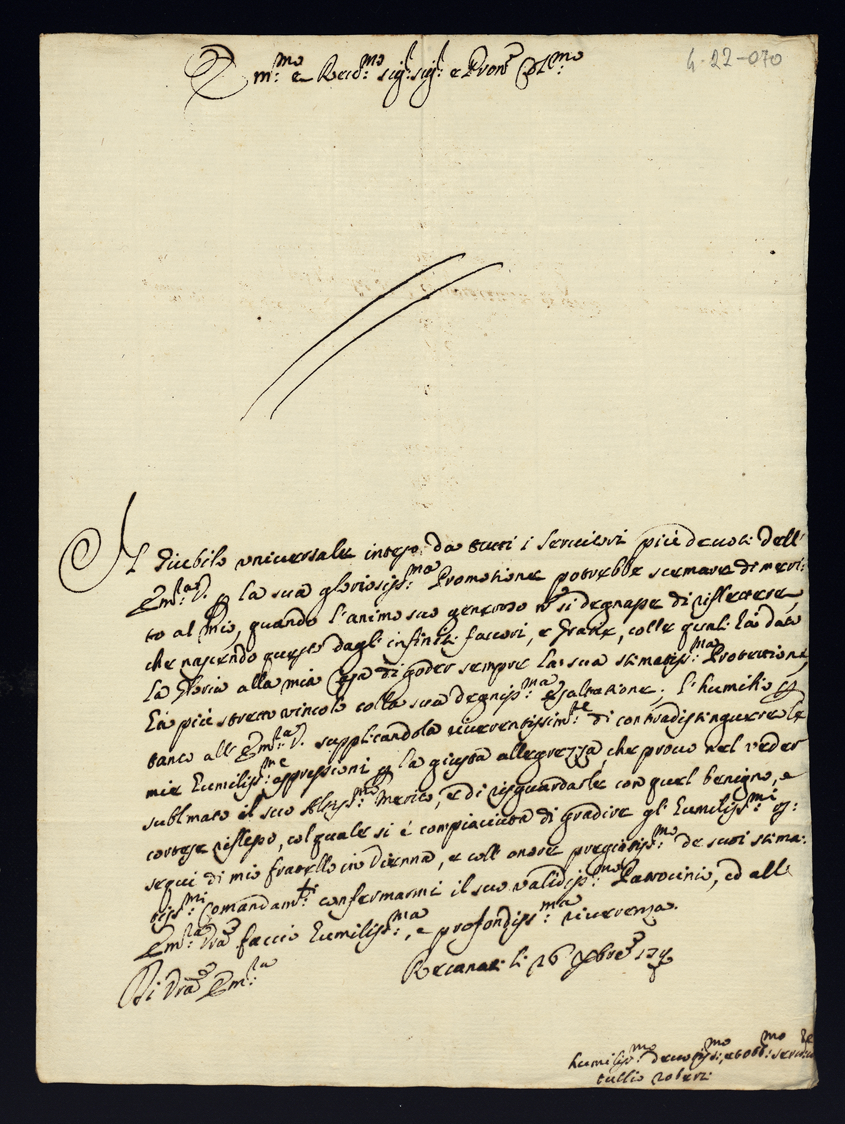 4-22-070
Em:mo e Reud:mo sig:r sig:r e Pron:e Col:mo
Il Giubilo universale inteso da tutti i servitori più devoti dell'
Em:za V. p la sua gloriosiss:ma Promotione potrebbe scemare di meri:
to al mio, quando l'animo suo generoso nō si degnasse di riflettere,
che nascendo questo dagl'infiniti favori, e Gratie, colle quali hà dato
la Gloria alla mia Casa di goder sempre la sua stimatiss:ma Protettione,
hà più stretto vincolo colla sua degniss:ma esaltatione; l'humilio p
tanto all'Em:za V. supplicandola riverentissim:te di contradistinguere le
mie humiliss:me espressioni p la giusta allegrezza, che provo nel veder
sublimato il suo Altiss:mo Merito, e di risguardarle con quel benigno, e
cortese riflesso, col quale si è compiaciuta di gradire gl'humiliss:mi os:
sequi di mio fratello in Vienna, e coll'onore pregiatiss:mo de suoi stima:
tiss:mi Comandam:ti confermarmi il suo validiss:mo Patrocinio, ed all'
Em:za Vra faccio humiliss:ma, e profondiss:ma riverenza.
Di Vra Em:za
Recanati li 26 Xbre
humiliss:mo devotiss:mo, et obb:mo serv:re
tullio roberti